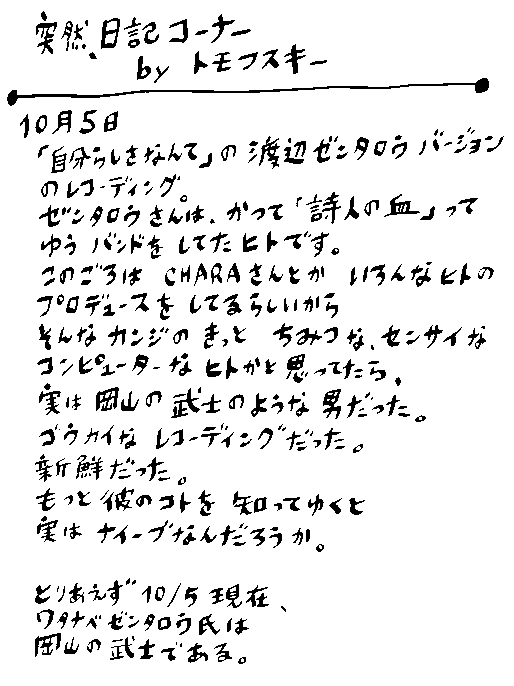 突然、日記コーナー
by トモフスキー
10月5日
「自分らしさなんて」の 渡辺ゼンタロウ バージョン
のレコーディング。
ゼンタロウさんは、かつて「詩人の血」って
ゆう バンドを してた ヒトです。
このごろは CHARAさんとか いろんなヒトの
プロデュースを してるらしいから
そんな カンジの きっと ちみつな、センサイな
コンピューターな ヒトかと思ってたら、
実は 岡山の 武士のような 男だった。
ゴウカイな レコーディングだった。
新鮮だった。
もっと 彼のコトを 知ってゆくと
実は ナイーブなんだろうか。
とりあえず 10/5 現在、
ワタナベゼンタロウ氏は
岡山の 武士である。